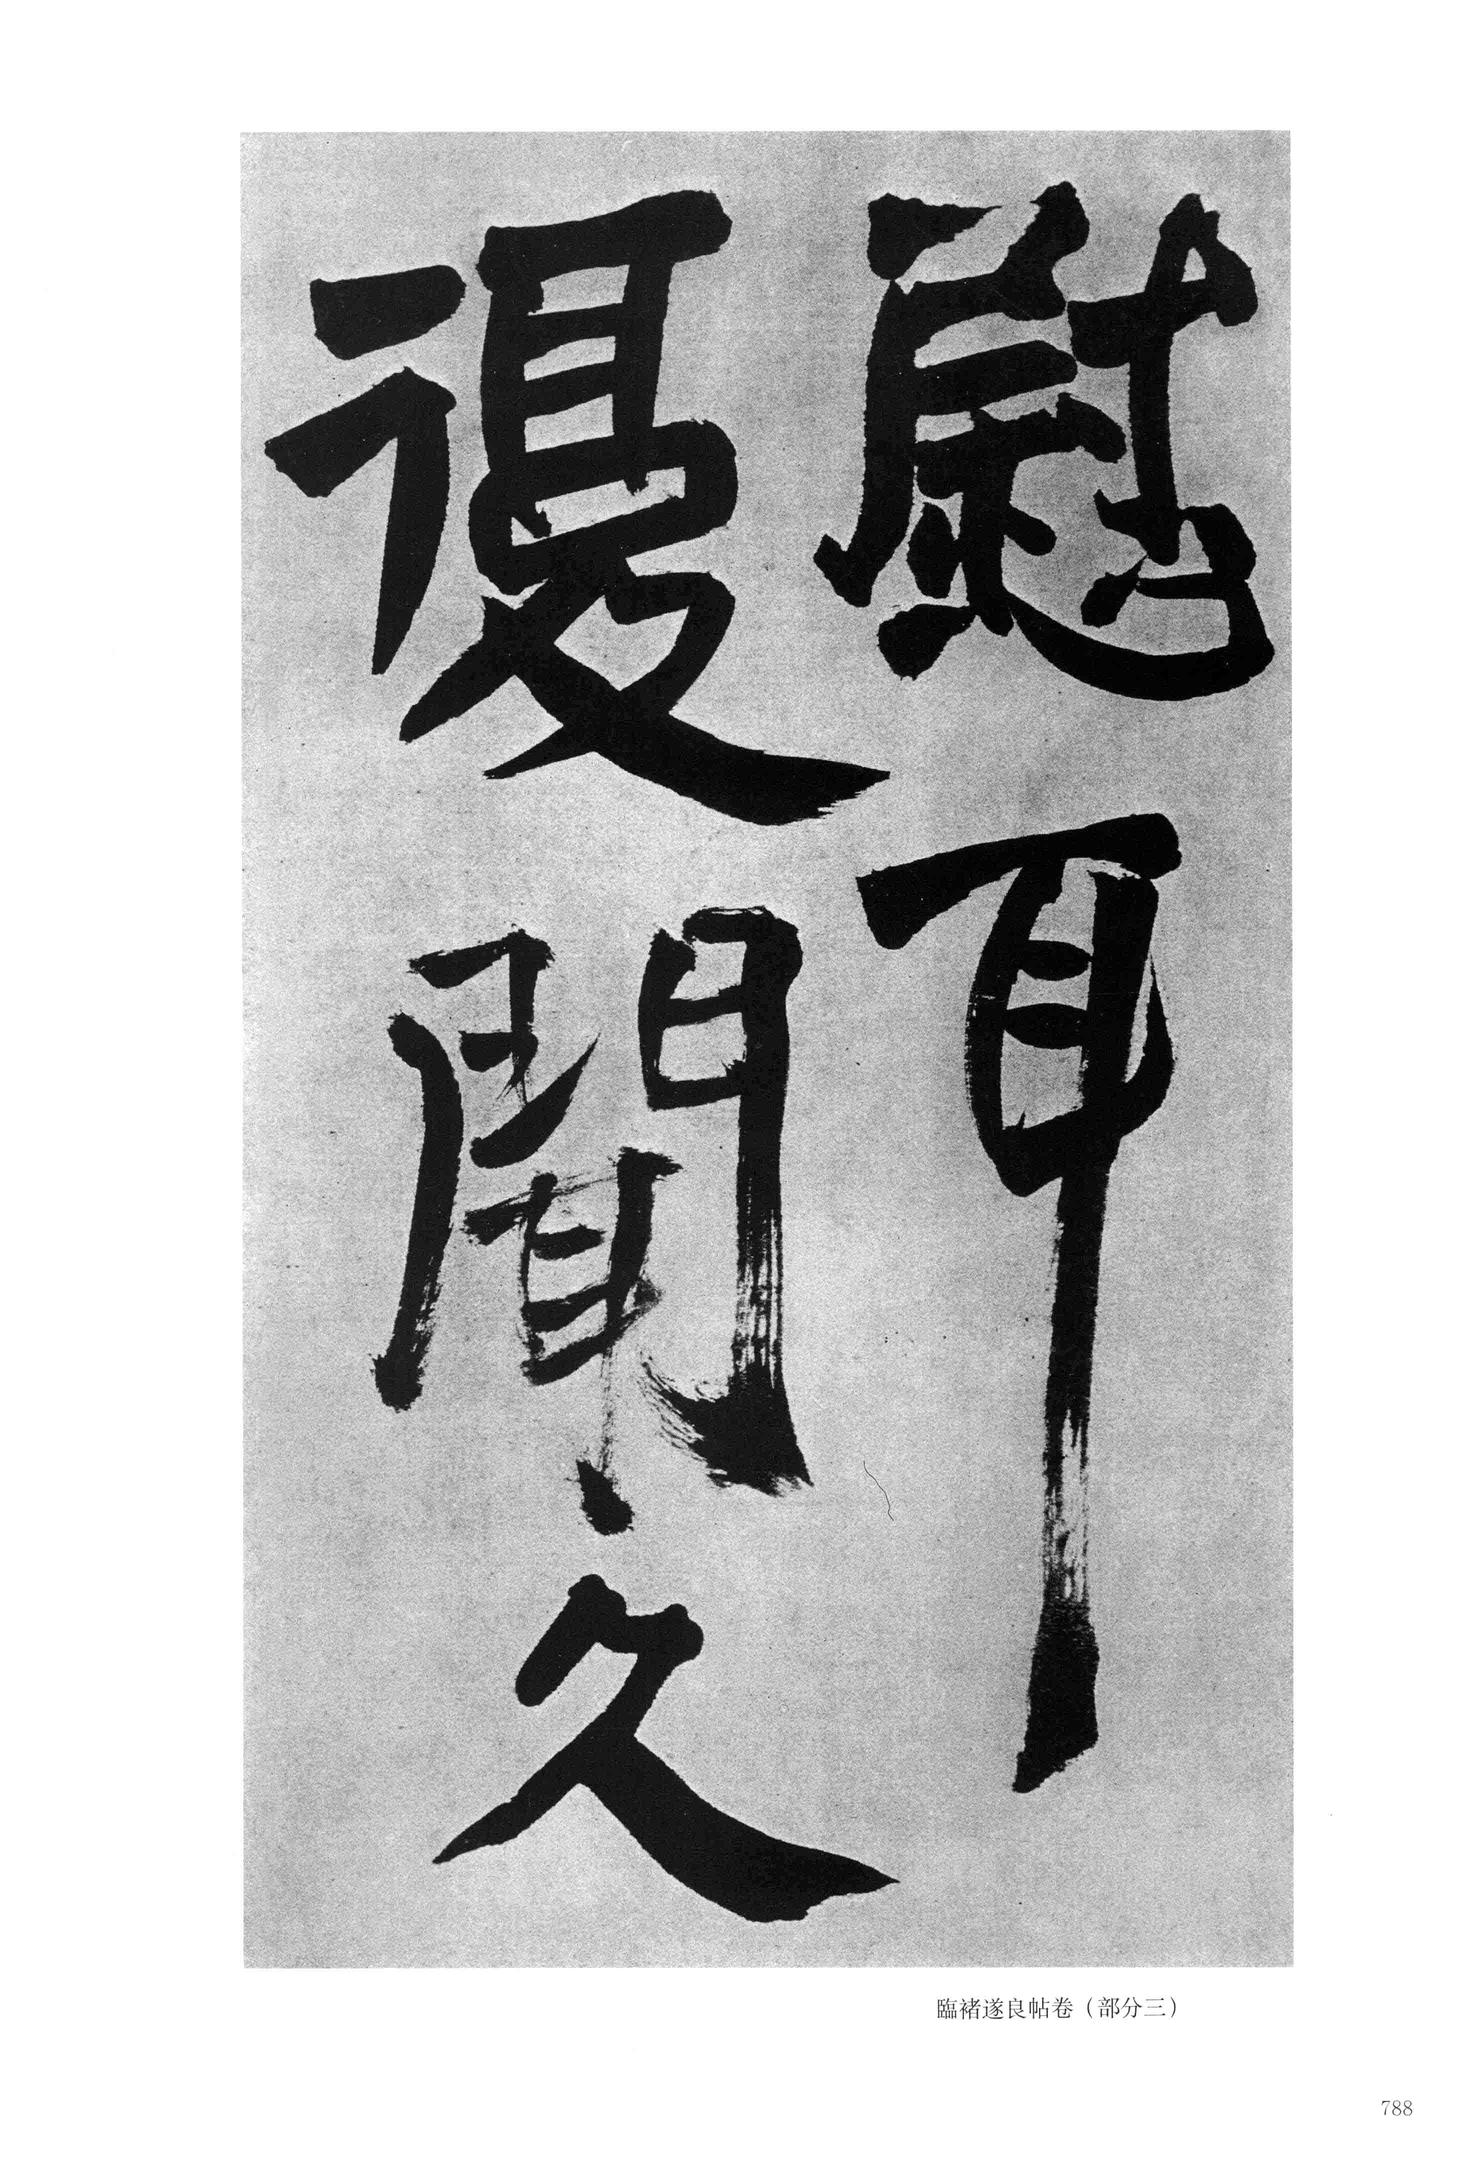 慰耳
復聞久
臨褚遂良帖卷（部分三）
788